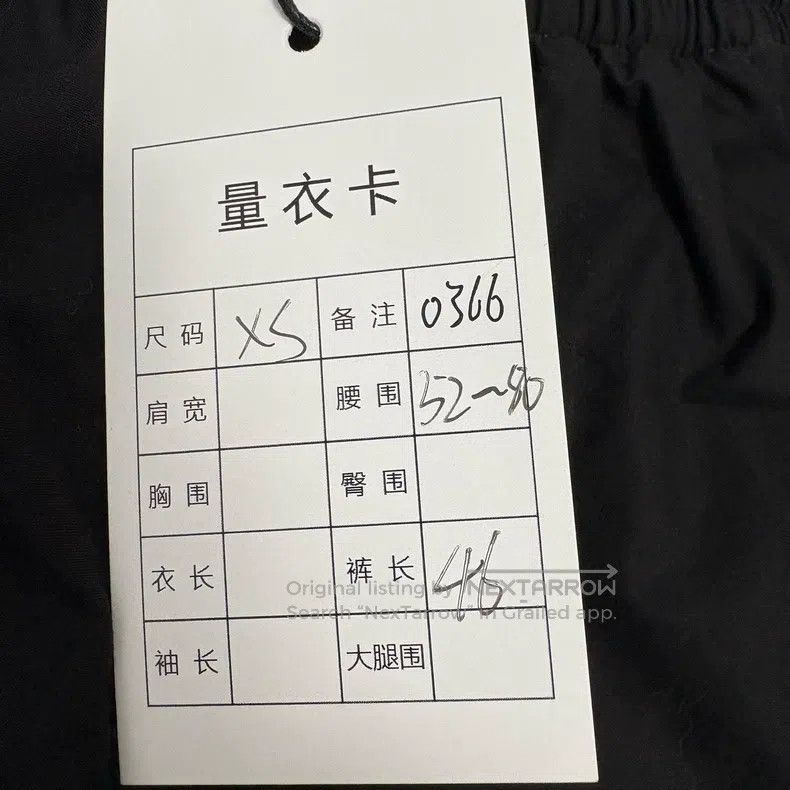 量衣卡
尺码 XS 备注 0366
肩宽 腰围 52~80
胸围 臀围
衣长 裤长 45
袖长 大腿围
Original listing by NEXTARROW
Search "NexTarrow" in Grailed app.